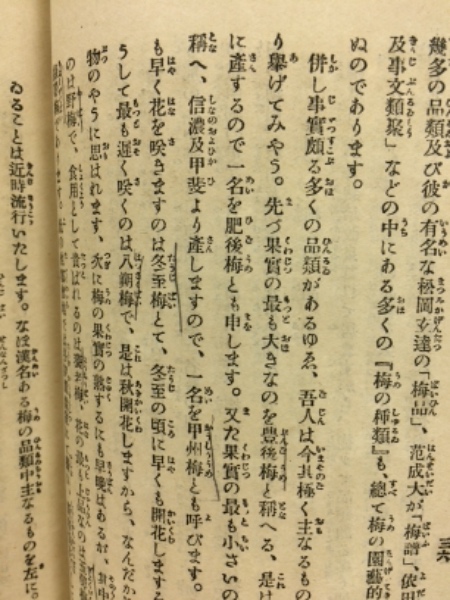 幾多の品類及び彼の有名な松岡玄達の「梅品」、范成大が「梅譜」、依田
及事文類聚」などの中にある多くの『梅の種類』も、總て梅の園藝的
ぬのであります。
併し事實頗る多くの品類があるゆゑ、吾人は今其極く主なるもの
り擧げてみやう。先づ果實の最も大きなのを豐後梅と稱へる、是は
に產するので一名を肥後梅とも申します。又た果實の最も小さいの
稱へ、信濃及甲斐より產しますので、一名を甲州梅とも呼びます。
も早く花を咲きますのは冬至梅とて、冬至の頃に早くも開花しまする
うして最も遲く咲くのは八朔梅で、是は秋開花しますから、なんだか
物のやうに思はれます、次に梅の果實の熟するにも早晩はあるが、
のは野梅で、食用として貴ばれるのは
、花の最も上品なのは
ゐることは近時流行いたします。なほ漢名ある梅の品類中主なるものを左に。
三六